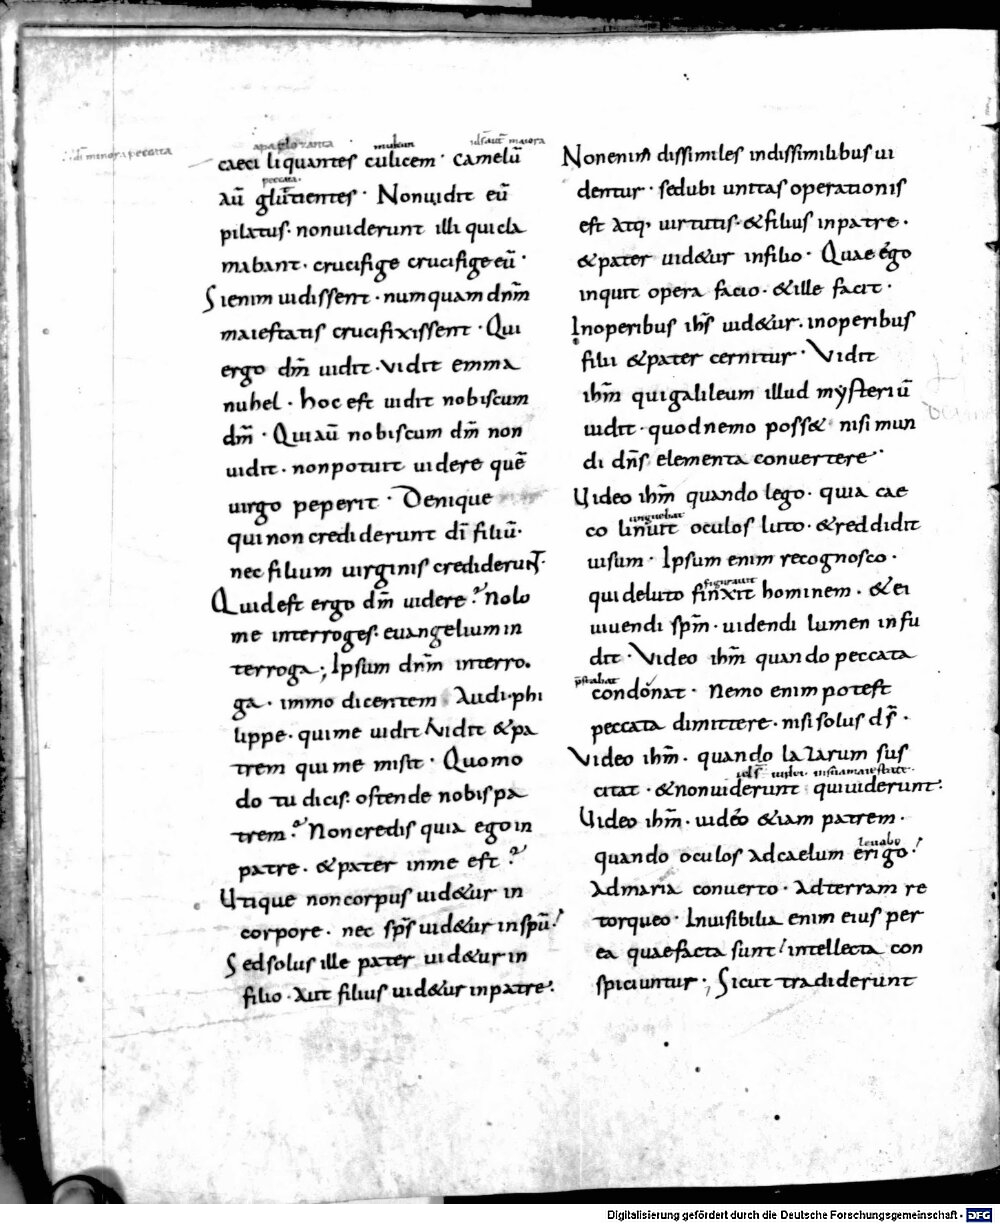 minora peccata
mukun maiora
caeci liquantes culicem · camelū
peccata ·
aū glutientes · Nonuidit eū
pilatus · nonuiderunt illi quicla
mabant · crucifige crucifige eū ·
Sienim uidissent · numquam dnm̄
maiestatis crucifixissent · Qui
ergo dm̄ uidit · vidit emma
nuhel · hoc est uidit nobiscum
dm̄ · Quiaū nobiscum dm̄ non
uidit · nonpotuit uidere quē
uirgo peperit · Denique
qui non crediderunt dī filiū ·
nec filium uirginis crediderunt ·
Quid est ergo dm̄ uidere? Nolo
me interroges · euangelium in
terroga ; Ipsum dnm̄ interro
ga · immo dicentem Audi · phi
lippe · quime uidit vidit & pa
trem qui me misit · Quomo
do tu dicis · ostende nobis pa
trem? Noncredis quia ego in
patre · & pater inme est?
Utique noncorpus uid&ur in
corpore · nec sps̄ uid&ur in spū !
Sed solus ille pater uid&ur in
filio · Aut filius uid&ur inpatre ·
Nonenim dissimiles indissimilibus ui
dentur · sedubi unitas operationis
est atq· uirtutis · & filius inpatre ·
& pater uid&ur infilio · Quae égo
inquit opera facio · & ille facit ·
Inoperibus ihs̄ uid&ur · inoperibus
filii & pater cernitur · Vidit
ihm̄ qui galileum illud mẏsteriū
uidit · quod nemo poss& nisi mun
di dns̄ elementa conuertere ·
Video ihm̄ quando lego · quia cae
unguebat
co linuit oculos luto · & reddidit
uisum · Ipsum enim recognosco ·
figurauit
qui deluto finxit hominem · & ei
uiuendi spm̄ · uidendi lumen infu
dit · Video ihm̄ quando peccata
condonat · Nemo enim potest
peccata dimittere · nisi solus ds̄ ·
Video ihm̄ · quando lazarum sus
insuamaiestate ·
citat · & nonuiderunt quiuiderunt ·
Video ihm̄ · uidéo &iam patrem ·
leuabo
quando oculos adcaelum erigo !
Admaria conuerto · Adterram re
torqueo · Inuisibilia enim eius per
ea quaefacta sunt ! intellecta con
spiciuntur · ; Sicut tradiderunt
Digitalisierung gefördert durch die Deutsche Forschungsgemeinschaft - DFG